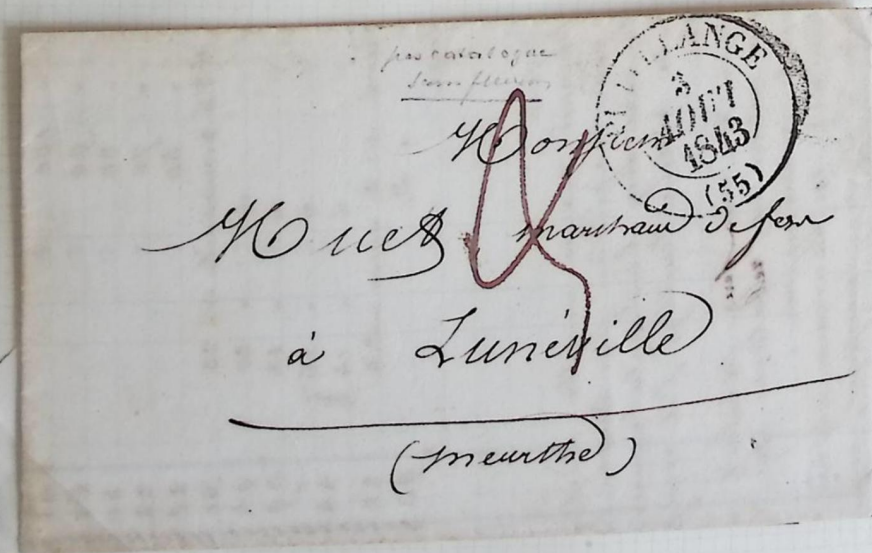 pas catalogue
sans fleuron
3
AOUT
1843
(55)
Monsieur
Huet marchand de fer
à Lunéville
(Meurthe)